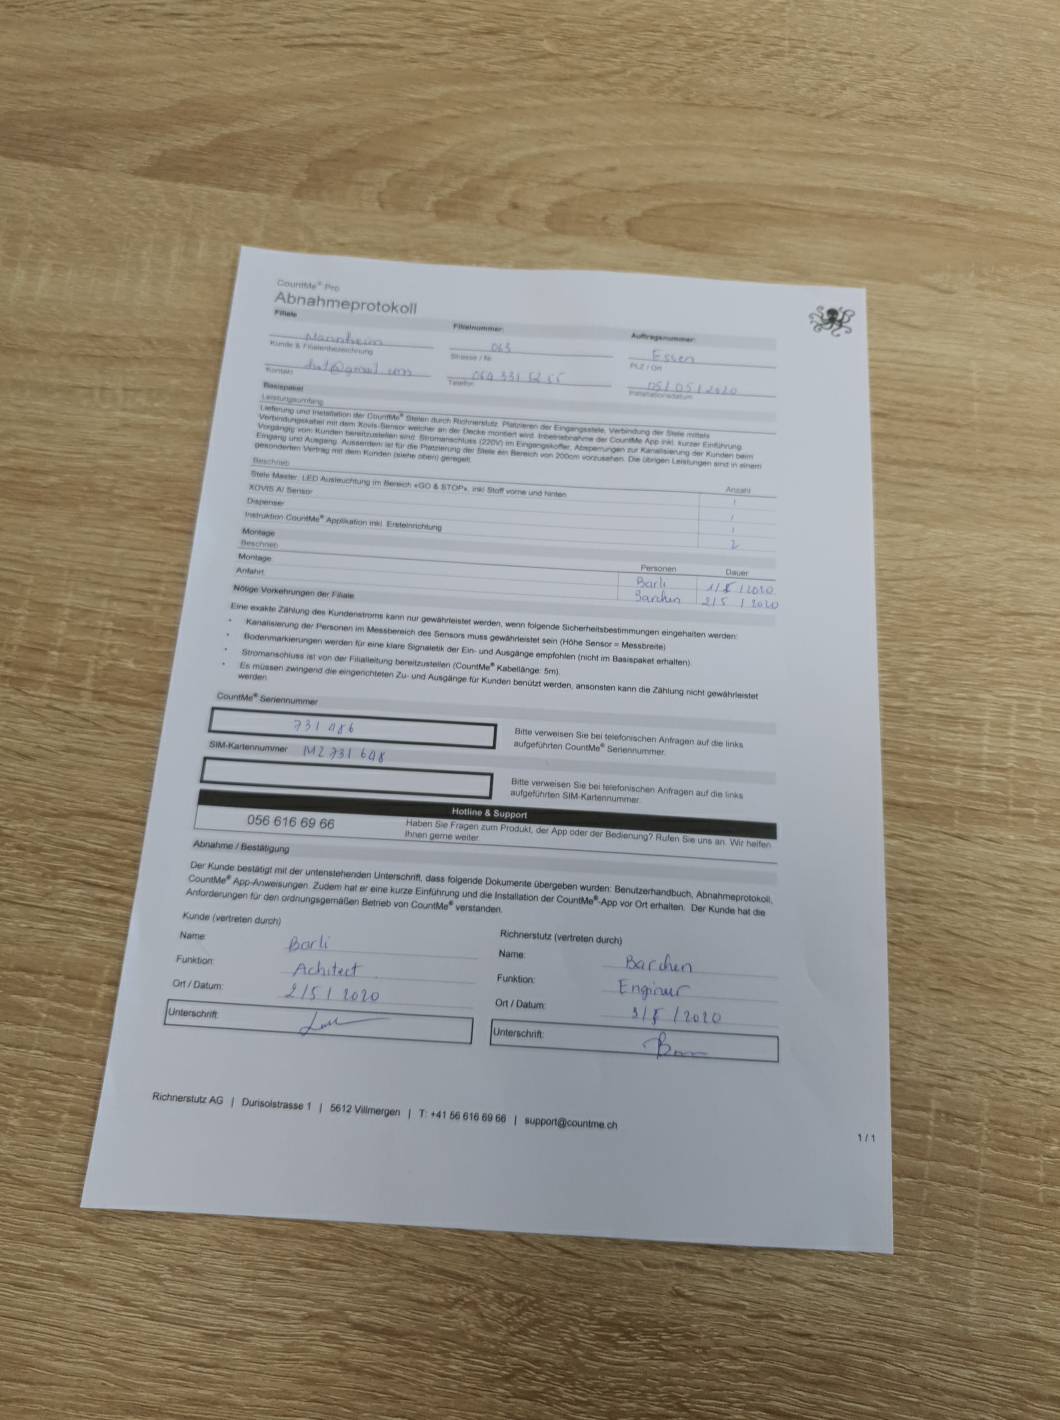 CountMe® Pro
Abnahmeprotokoll
Filiale
Filialnummer:
Auftragsnummer:
Mannheim
063
Essen
Kunde & Filialenbezeichnung
Strasse / Nr.
PLZ / Ort
@gmail.com
064 331 52 55
05/05/2020
Kontakt
Telefon
Installationsdatum
Basispaket
Leistungsumfang
Lieferung und Installation der CountMe® Stelen durch Richnerstutz. Platzieren der Eingangsstele, Verbindung der Stele mittels
Verbindungskabel mit dem Xovis-Sensor welcher an der Decke montiert wird. Inbetriebnahme der CountMe App inkl. kurzer Einführung.
Vorgängig vom Kunden bereitzustellen sind: Stromanschluss (220V) im Eingangskoffer, Absperrungen zur Kanalisierung der Kunden beim
Eingang und Ausgang. Ausserdem ist für die Platzierung der Stele ein Bereich von 200cm vorzusehen. Die übrigen Leistungen sind in einem
gesonderten Vertrag mit dem Kunden (siehe oben) geregelt.
Beschrieb
Anzahl
Stele Master, LED Ausleuchtung im Bereich «GO & STOP», inkl Stoff vorne und hinten
1
XOVIS AI Sensor
1
Dispenser
1
Instruktion CountMe® Applikation inkl. Ersteinrichtung
2
Montage
Beschrieb
Personen
Dauer
Montage
Barli
1/5/2020
Anfahrt
Barchen
2/5/2020
Nötige Vorkehrungen der Filiale
Eine exakte Zählung des Kundenstroms kann nur gewährleistet werden, wenn folgende Sicherheitsbestimmungen eingehalten werden:
• Kanalisierung der Personen im Messbereich des Sensors muss gewährleistet sein (Höhe Sensor = Messbreite)
• Bodenmarkierungen werden für eine klare Signaletik der Ein- und Ausgänge empfohlen (nicht im Basispaket erhalten)
• Stromanschluss ist von der Filialleitung bereitzustellen (CountMe® Kabellänge: 5m).
• Es müssen zwingend die eingerichteten Zu- und Ausgänge für Kunden benützt werden, ansonsten kann die Zählung nicht gewährleistet
werden.
CountMe® Seriennummer
731 486
Bitte verweisen Sie bei telefonischen Anfragen auf die links
aufgeführten CountMe® Seriennummer.
SIM-Kartennummer
M2 731 648
Bitte verweisen Sie bei telefonischen Anfragen auf die links
aufgeführten SIM-Kartennummer.
Hotline & Support
056 616 69 66
Haben Sie Fragen zum Produkt, der App oder der Bedienung? Rufen Sie uns an. Wir helfen
Ihnen gerne weiter.
Abnahme / Bestätigung
Der Kunde bestätigt mit der untenstehenden Unterschrift, dass folgende Dokumente übergeben wurden: Benutzerhandbuch, Abnahmeprotokoll,
CountMe® App-Anweisungen. Zudem hat er eine kurze Einführung und die Installation der CountMe®-App vor Ort erhalten. Der Kunde hat die
Anforderungen für den ordnungsgemäßen Betrieb von CountMe® verstanden.
Kunde (vertreten durch)
Name:
Barli
Funktion:
Achitect
Ort / Datum:
2/5/2020
Unterschrift:
Richnerstutz (vertreten durch)
Name:
Barchen
Funktion:
Enginur
Ort / Datum:
3/5/2020
Unterschrift:
Richnerstutz AG | Durisolstrasse 1 | 5612 Villmergen | T: +41 56 616 69 66 | support@countme.ch
1 / 1